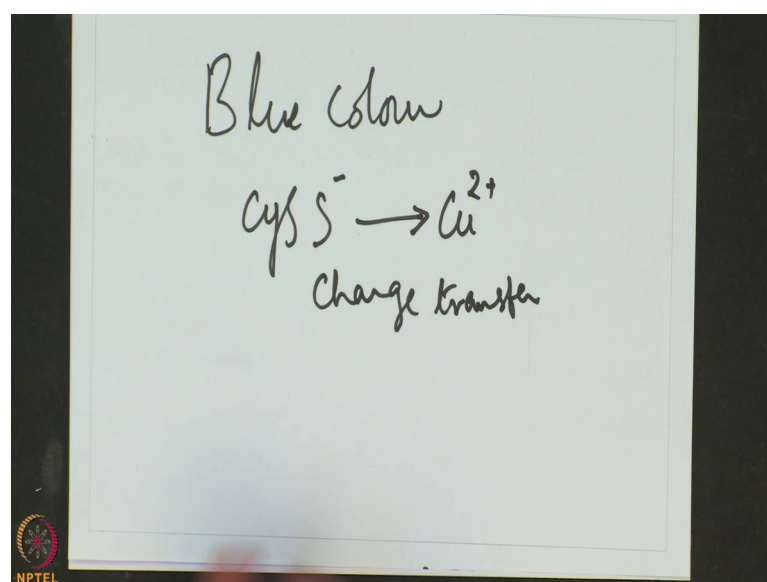 Blue Colour
CysS⁻ → Cu²⁺
Charge transfer
NPTEL